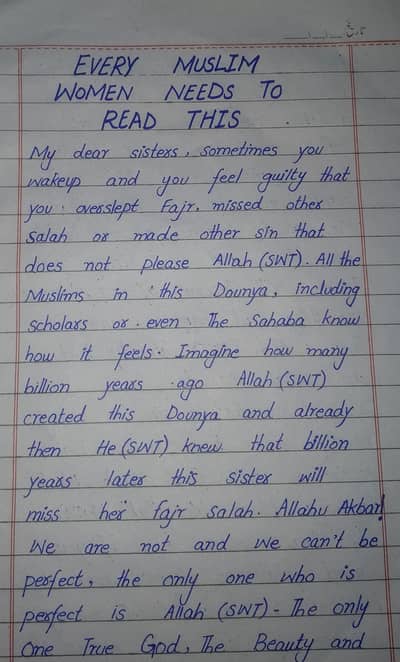 EVERY MUSLIM
WOMEN NEEDS TO
READ THIS
My dear sisters, sometimes you
wakeup and you feel guilty that
you overslept Fajr, missed other
Salah or made other sin that
does not please Allah (SWT). All the
Muslims in this Dounya, including
scholars or even The Sahaba know
how it feels. Imagine how many
billion years ago Allah (SWT)
created this Dounya and already
then He (SWT) knew that billion
years later this sister will
miss her fajr salah. Allahu Akbar!
We are not and we can't be
perfect, the only one who is
perfect is Allah (SWT) - The only
One True God, The Beauty and